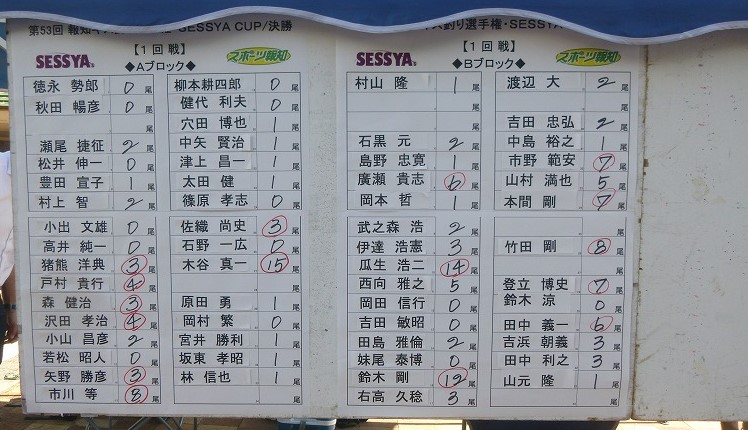 第53回 報知キス SESSYA CUP/決勝
ス釣り選手権・SESSYA
【1回戦】
SESSYA スポーツ報知
◆Aブロック◆
徳永 勢郎 0 尾
秋田 暢彦 0 尾
尾
瀬尾 捷征 2 尾
松井 伸一 0 尾
豊田 宣子 1 尾
村上 智 2 尾
小出 文雄 0 尾
高井 純一 0 尾
猪熊 洋典 3 尾
戸村 貴行 4 尾
森 健治 3 尾
沢田 孝治 4 尾
小山 昌彦 2 尾
若松 昭人 0 尾
矢野 勝彦 3 尾
市川 等 8 尾
柳本耕四郎 0 尾
健代 利夫 0 尾
穴田 博也 1 尾
中矢 賢治 1 尾
津上 昌一 1 尾
太田 健 1 尾
篠原 孝志 0 尾
佐織 尚史 3 尾
石野 一広 0 尾
木谷 真一 15 尾
尾
原田 勇 1 尾
岡村 繁 0 尾
宮井 勝利 1 尾
坂東 孝昭 1 尾
林 信也 1 尾
【1回戦】
SESSYA スポーツ報知
◆Bブロック◆
村山 隆 1 尾
尾
尾
石黒 元 2 尾
島野 忠寛 1 尾
廣瀬 貴志 6 尾
岡本 哲 1 尾
武之森 浩 2 尾
伊達 浩憲 3 尾
瓜生 浩二 14 尾
西向 雅之 5 尾
岡田 信行 0 尾
吉田 敏昭 0 尾
田島 雅倫 2 尾
妹尾 泰博 0 尾
鈴木 剛 12 尾
右高 久稔 3 尾
渡辺 大 2 尾
尾
吉田 忠弘 2 尾
中島 裕之 1 尾
市野 範安 7 尾
山村 満也 5 尾
本間 剛 7 尾
尾
竹田 剛 8 尾
尾
登立 博史 7 尾
鈴木 涼 0 尾
田中 義一 6 尾
吉浜 朝義 3 尾
田中 利之 3 尾
山元 隆 1 尾